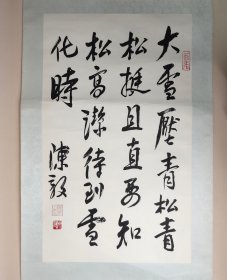 大雪壓青松青
松挺且直要知
松高潔待到雪
化時 陳毅